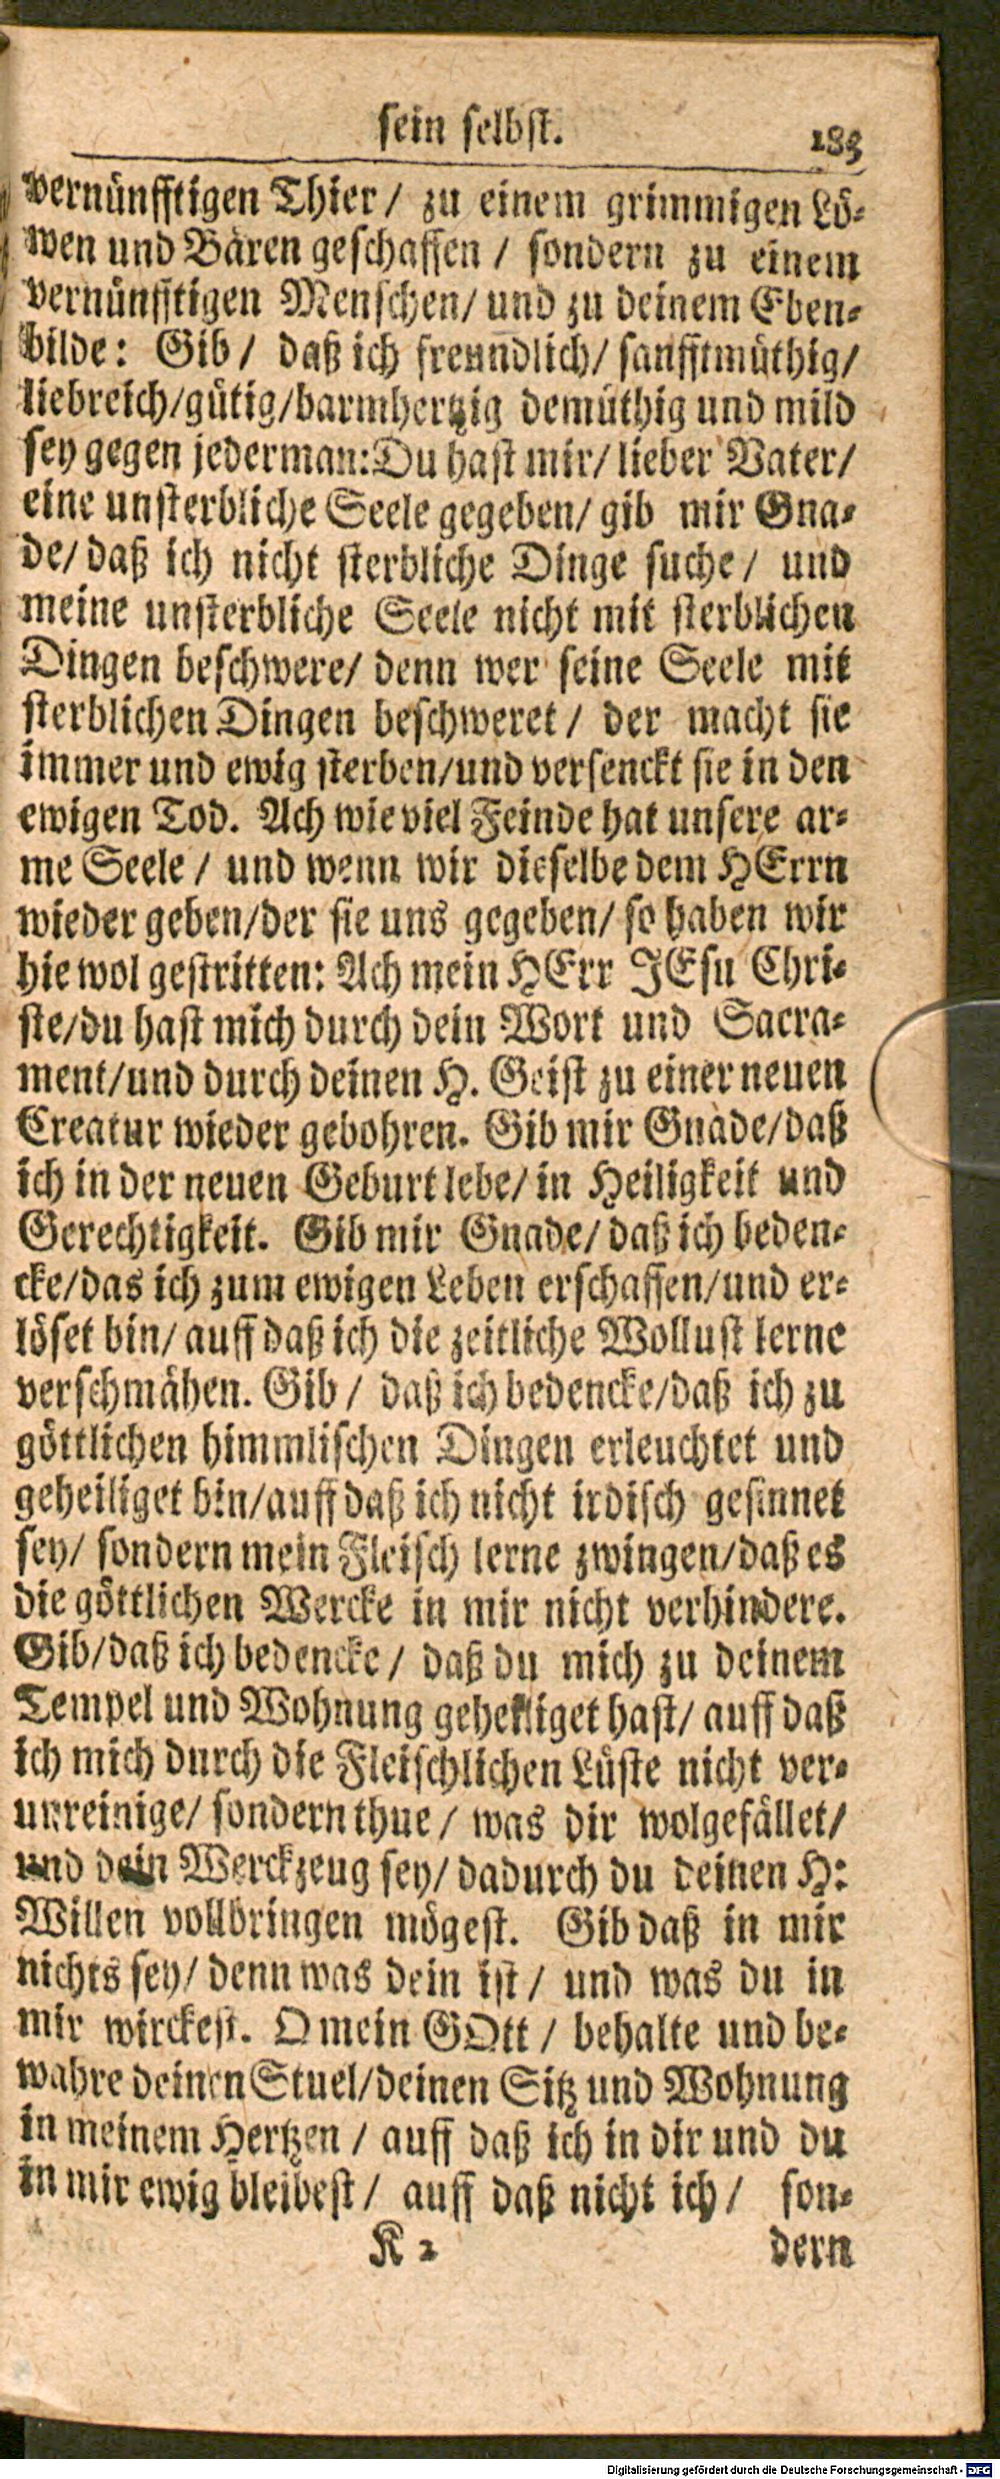 sein selbst. 183
vernünfftigen Thier/ zu einem grimmigen Lö-
wen und Bären geschaffen / sondern zu einem
vernünfftigen Menschen/ und zu deinem Eben-
bilde: Gib/ daß ich freundlich/ sanfftmüthig/
liebreich/gütig/barmhertzig demüthig und mild
sey gegen jederman: Du hast mir/ lieber Vater/
eine unsterbliche Seele gegeben/ gib mir Gna-
de/ daß ich nicht sterbliche Dinge suche/ und
meine unsterbliche Seele nicht mit sterblichen
Dingen beschwere/ denn wer seine Seele mit
sterblichen Dingen beschweret / der macht sie
immer und ewig sterben/und versenckt sie in den
ewigen Tod. Ach wie viel Feinde hat unsere ar-
me Seele / und wenn wir dieselbe dem HErrn
wieder geben/der sie uns gegeben/ so haben wir
hie wol gestritten: Ach mein HErr JEsu Chri-
ste/du hast mich durch dein Wort und Sacra-
ment/und durch deinen H. Geist zu einer neuen
Creatur wieder gebohren. Gib mir Gnade/daß
ich in der neuen Geburt lebe/ in Heiligkeit und
Gerechtigkeit. Gib mir Gnade/ daß ich beden-
cke/das ich zum ewigen Leben erschaffen/und er-
löset bin/ auff daß ich die zeitliche Wollust lerne
verschmähen. Gib / daß ich bedencke/daß ich zu
göttlichen himmlischen Dingen erleuchtet und
geheiliget bin/auff daß ich nicht irdisch gesinnet
sey/ sondern mein Fleisch lerne zwingen/daß es
die göttlichen Wercke in mir nicht verhindere.
Gib/daß ich bedencke / daß du mich zu deinem
Tempel und Wohnung geheiliget hast/ auff daß
ich mich durch die Fleischlichen Lüste nicht ver-
unreinige/ sondern thue / was dir wolgefället/
und dein Werckzeug sey/ dadurch du deinen H:
Willen vollbringen mögest. Gib daß in mir
nichts sey/ denn was dein ist / und was du in
mir wirckest. O mein GOtt / behalte und be-
wahre deinen Stuel/deinen Sitz und Wohnung
in meinem Hertzen / auff daß ich in dir und du
in mir ewig bleibest / auff daß nicht ich / son-
K 2 dern
Digitalisierung gefördert durch die Deutsche Forschungsgemeinschaft - DFG